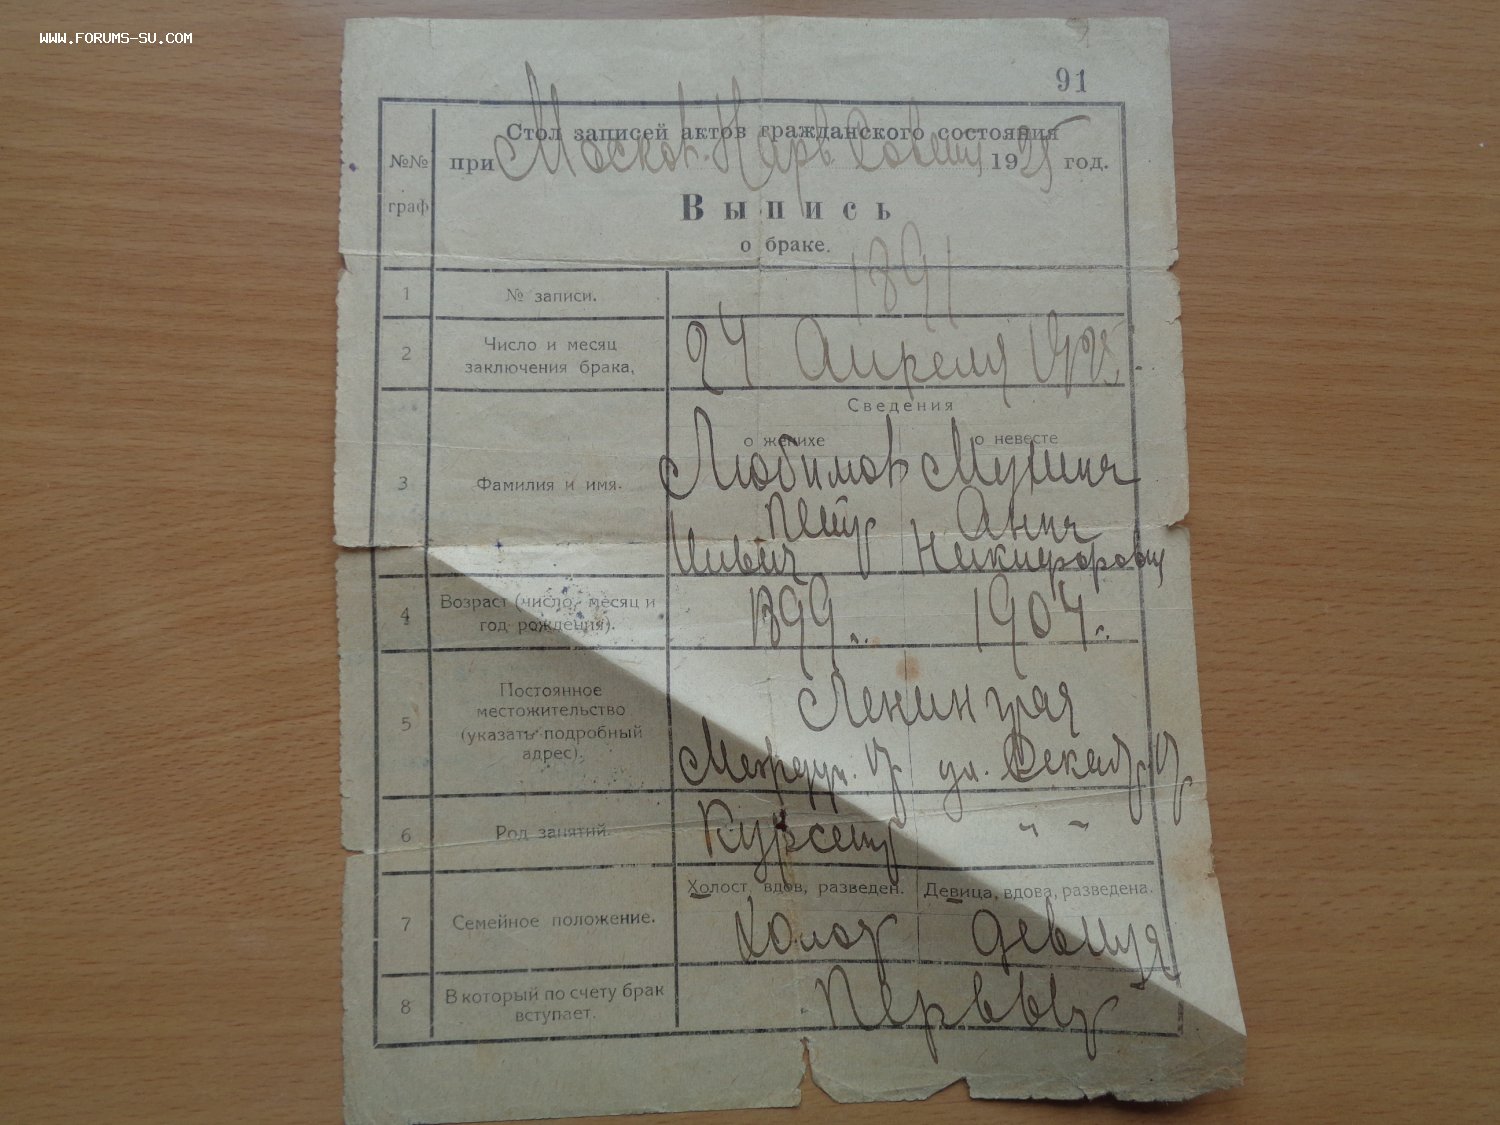 WWW.FORUMS-SU.COM
91
Стол записей актов гражданского состояния
№№ граф
при Москов. Нарв. Совет 1925 год.
Выпись
о браке.
1 № записи. 1891
2 Число и месяц заключения брака, Апреля
Сведения
о женихе о невесте
3 Фамилия и имя. Любимов
Петр Анна
Никифоровн
4 Возраст (число, месяц и год рождения). 1899 1904
5 Постоянное местожительство (указать подробный адрес). Ленинград
ул.
6 Род занятий. Курсант " "
Холост, вдов, разведен. Девица, вдова, разведена.
7 Семейное положение. Холост девица
8 В который по счету брак вступает. Первый